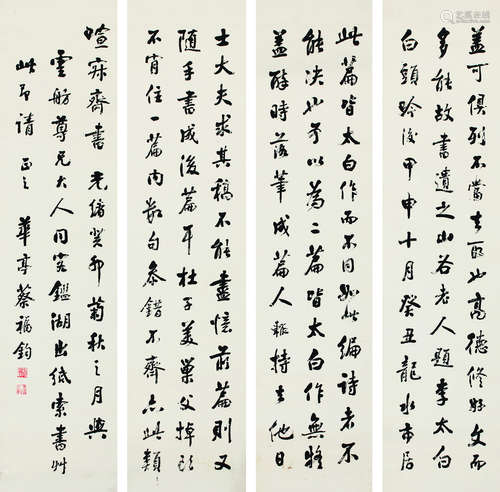 蓋可俱列不當去取也高德修好文而
多能故書遺之山谷老人題李太白
白頭吟後甲申十月癸丑龍水市居
此篇皆太白作而不同如此編詩者不
能決也予以為二篇皆太白作無疑
蓋醉時落筆成篇人輒持去他日
士大夫求其稿不能盡憶前篇則又
隨手書成後篇耳杜子美巢父掉頭
不肯住一篇內數句參錯不齊亦此類
喧寂齋書 光緒癸卯菊秋之月與
雲舫尊兄大人同客鑑湖出紙索書艸
此即請 正之 華亭蔡福鈞